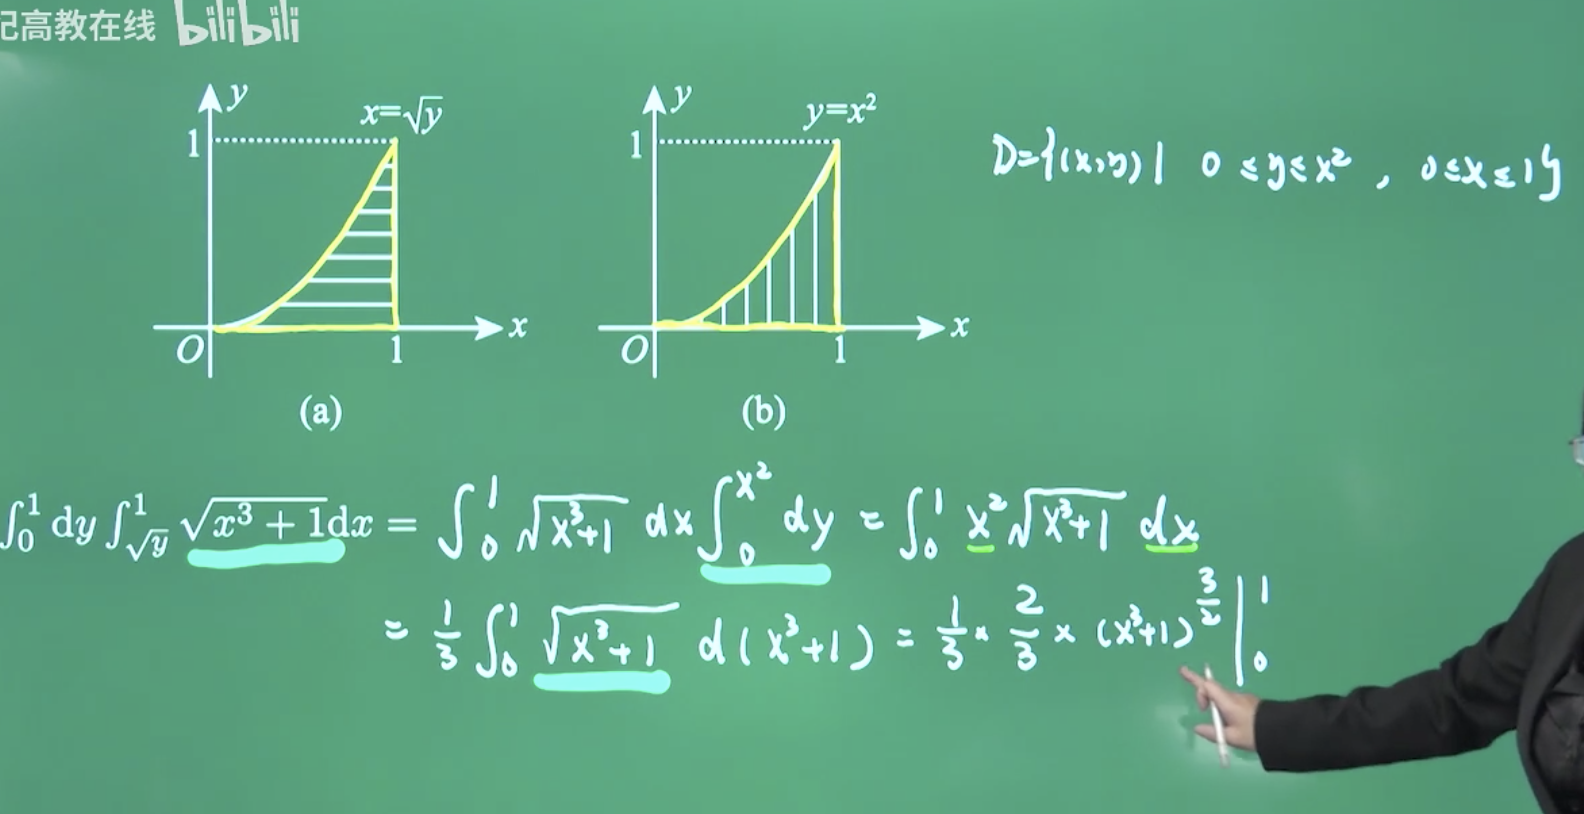 记高教在线 bilibili
y
x=√y
1
O
1
x
(a)
y
y=x²
1
O
1
x
(b)
D={(x,y)| 0≤y≤x², 0≤x≤1}
∫₀¹ dy ∫_{√y}^1 √(x³+1)dx = ∫₀¹ √(x³+1) dx ∫₀^{x²} dy = ∫₀¹ x²√(x³+1) dx
= 1/3 ∫₀¹ √(x³+1) d(x³+1) = 1/3 × 2/3 × (x³+1)^{3/2} |₀¹